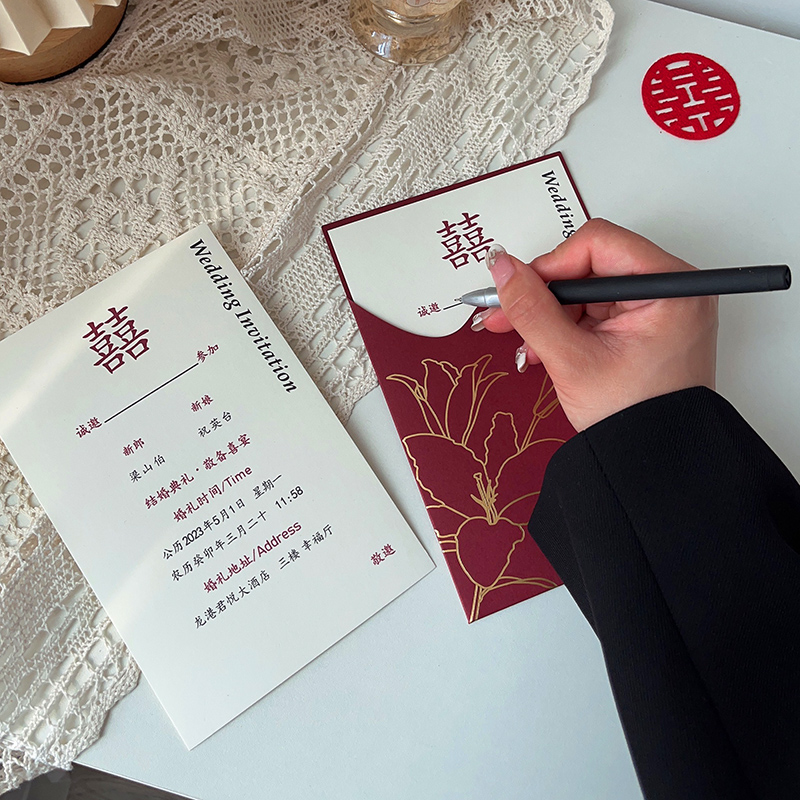 Wedding Invitation
囍
诚邀 参加
新郎 新娘
梁山伯 祝英台
结婚典礼·敬备喜宴
婚礼时间/Time
公历2023年5月1日 星期一
农历癸卯年三月二十 11:58
婚礼地址/Address
龙港君悦大酒店 三楼 幸福厅
敬邀
Wedding
囍
诚邀
囍